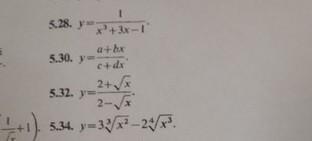 5.28. y = 1/(x³+3x−1).
5.30. y = (a+bx)/(c+dx).
5.32. y = (2+√x)/(2−√x).
+1). 5.34. y = 3∛x² − 2∜x³.